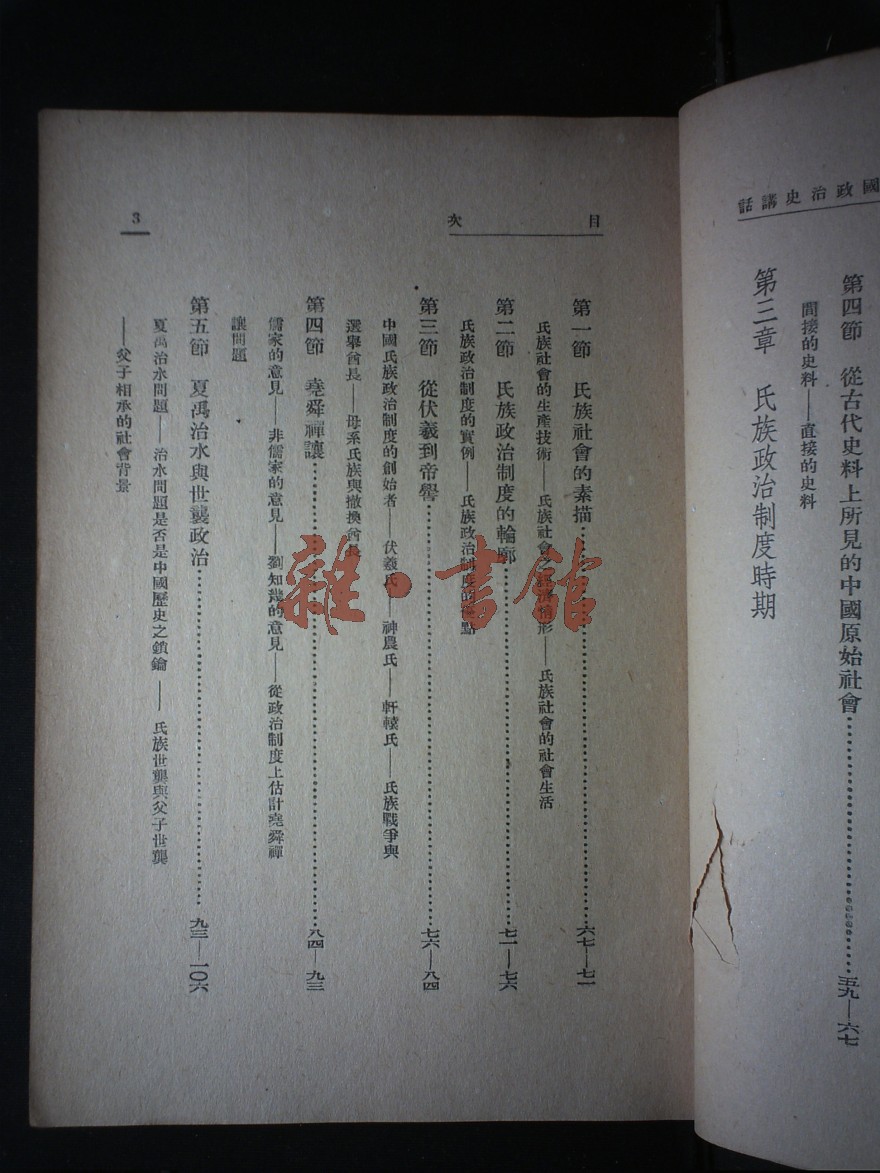 國政治史講話
第四節　從古代史料上所見的中國原始社會……五九—六七
間接的史料——直接的史料
第三章　氏族政治制度時期
目次
第一節　氏族社會的素描……六七—七一
氏族社會的生產技術——氏族社會之經濟情形——氏族社會的社會生活
第二節　氏族政治制度的輪廓……七一—七六
氏族政治制度的實例——氏族政治制度的點
第三節　從伏羲到帝嚳……七六—八四
中國氏族政治制度的創始者——伏羲氏——神農氏——軒轅氏——氏族戰爭與
選舉酋長——母系氏族與撤換酋長
第四節　堯舜禪讓……八四—九三
儒家的意見——非儒家的意見——劉知幾的意見——從政治制度上估計堯舜禪
讓問題
第五節　夏禹治水與世襲政治……九三—一〇六
夏禹治水問題——治水問題是否是中國歷史之鎖鑰——氏族世襲與父子世襲
——父子相承的社會背景
3
雜·書館